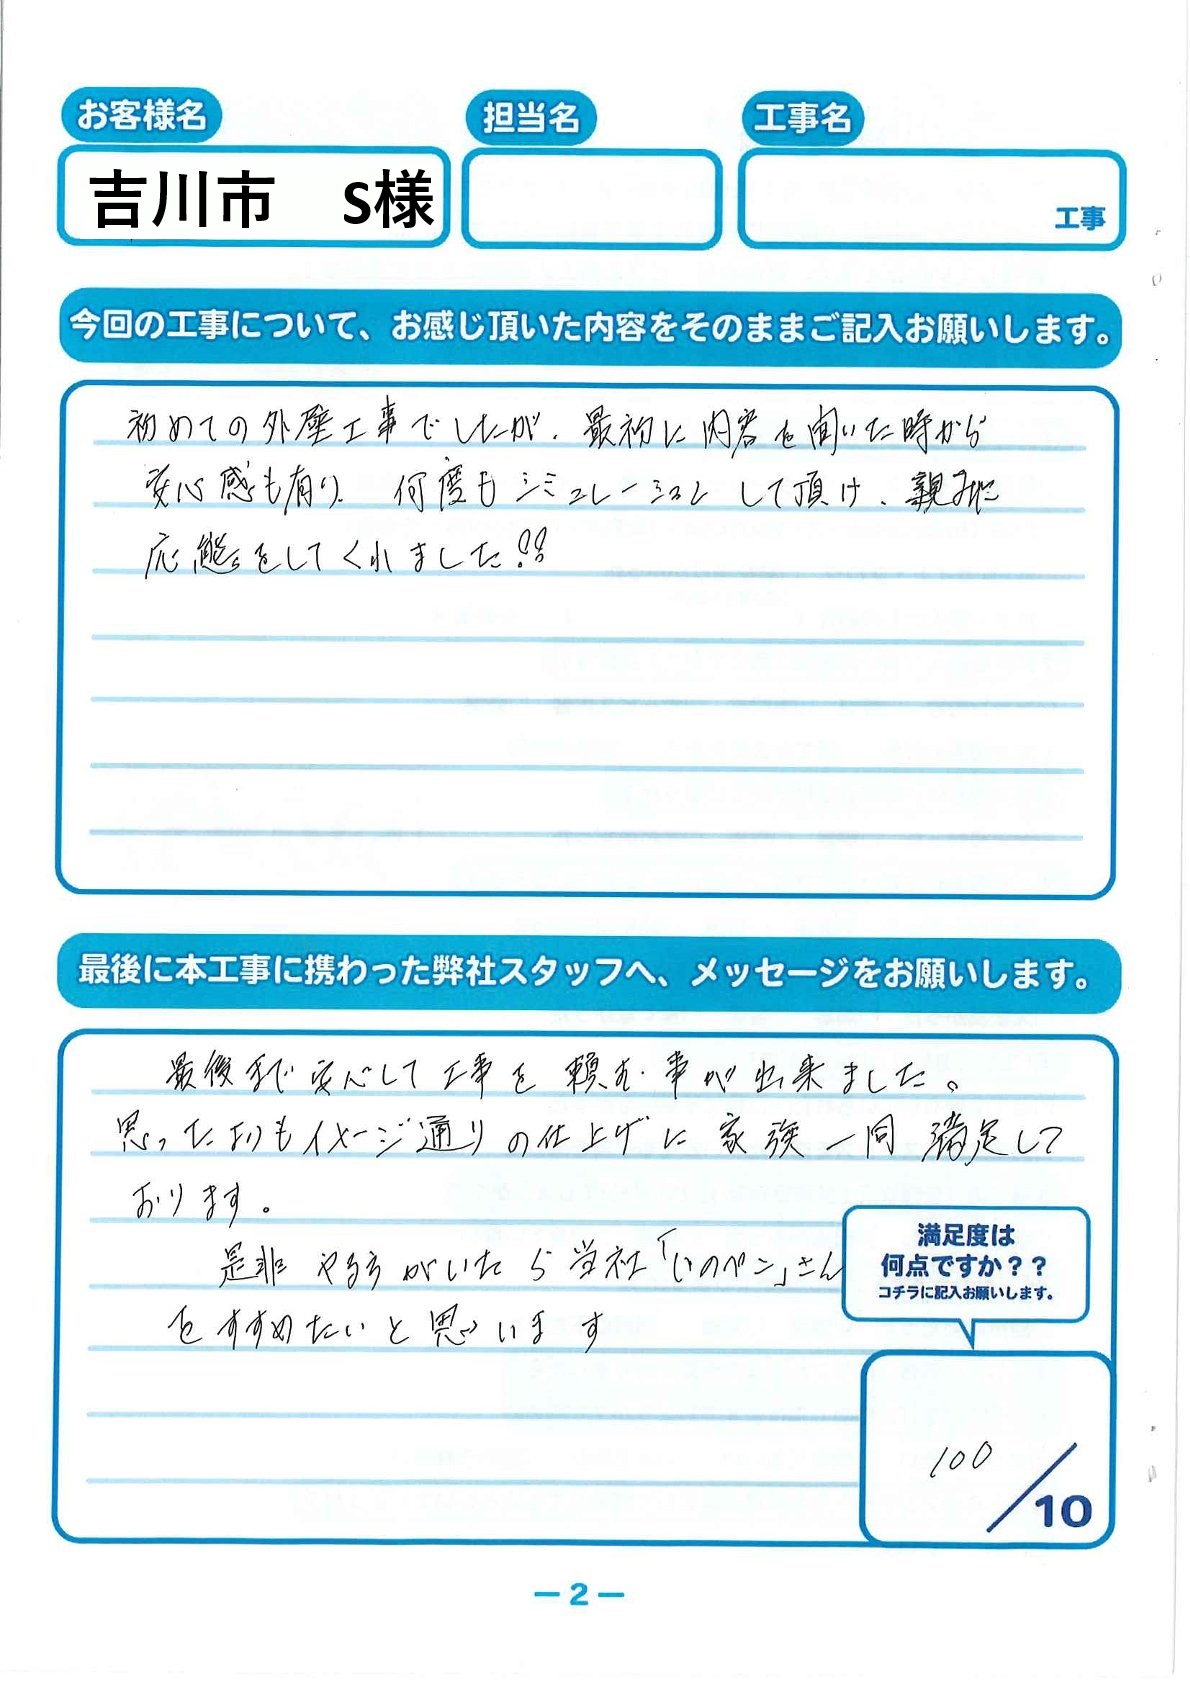 お客様名
担当名
工事名
吉川市 S様
工事
今回の工事について、お感じ頂いた内容をそのままご記入お願いします。
初めての外壁工事でしたが、最初に内容を聞いた時から
安心感も有り、何度もシミュレーションして頂け、親身に
応態をしてくれました!!
最後に本工事に携わった弊社スタッフへ、メッセージをお願いします。
最後まで安心して工事を頼む事が出来ました。
思ったよりもイメージ通りの仕上げに家族一同満足して
おります。
是非やる方がいたら当社「いのペン」さん
をすすめたいと思います
満足度は
何点ですか??
コチラに記入お願いします。
100
/10
— 2 —